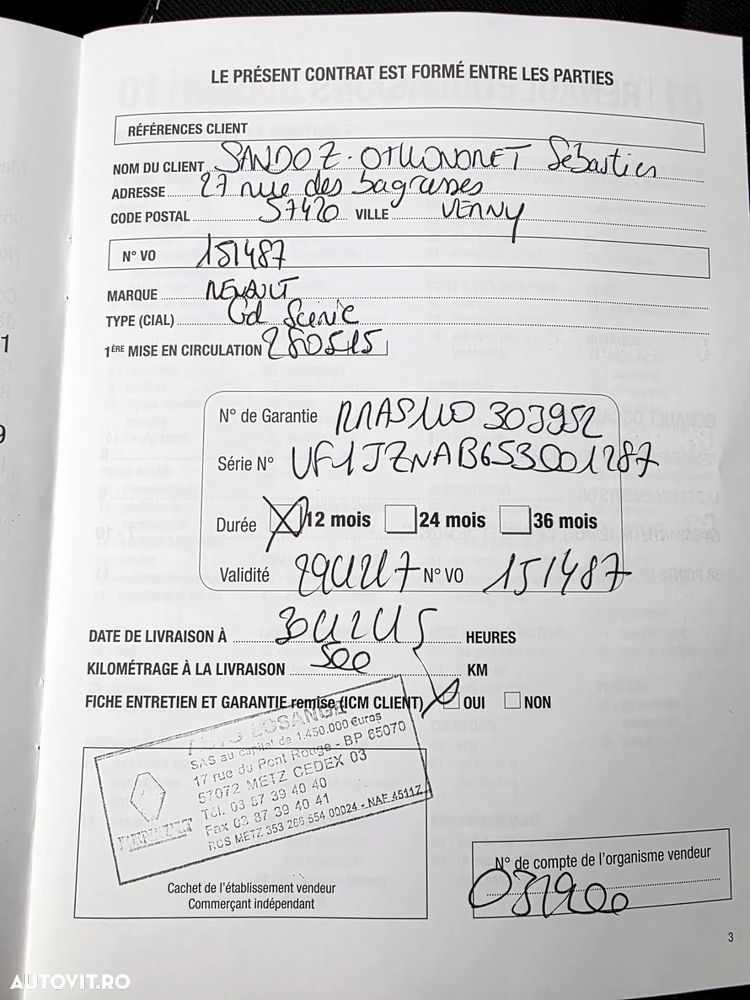 LE PRÉSENT CONTRAT EST FORMÉ ENTRE LES PARTIES
RÉFÉRENCES CLIENT
NOM DU CLIENT SANDOZ. OTHENONET Sébastien
ADRESSE 27 rue des
CODE POSTAL 57420 VILLE VERNY
N° VO 151487
MARQUE RENAULT
TYPE (CIAL) Gd Scénic
1ÈRE MISE EN CIRCULATION 280515
N° de Garantie 303952
Série N° VF1JZNAB653001287
Durée 12 mois 24 mois 36 mois
Validité N° VO 151487
DATE DE LIVRAISON À HEURES
KILOMÉTRAGE À LA LIVRAISON 500 KM
FICHE ENTRETIEN ET GARANTIE remise (ICM CLIENT) OUI NON
LOSANGE
SAS au capital de 1.450.000 euros
17 rue du Pont Rouge - BP 65070
57072 METZ CEDEX 03
Tél. 03 87 39 40 40
Fax 03 87 39 40 41
RCS METZ 353 266 554 00024 - NAF 4511Z
RENAULT
Cachet de l'établissement vendeur
Commerçant indépendant
N° de compte de l'organisme vendeur
031900
3
AUTOVIT.RO